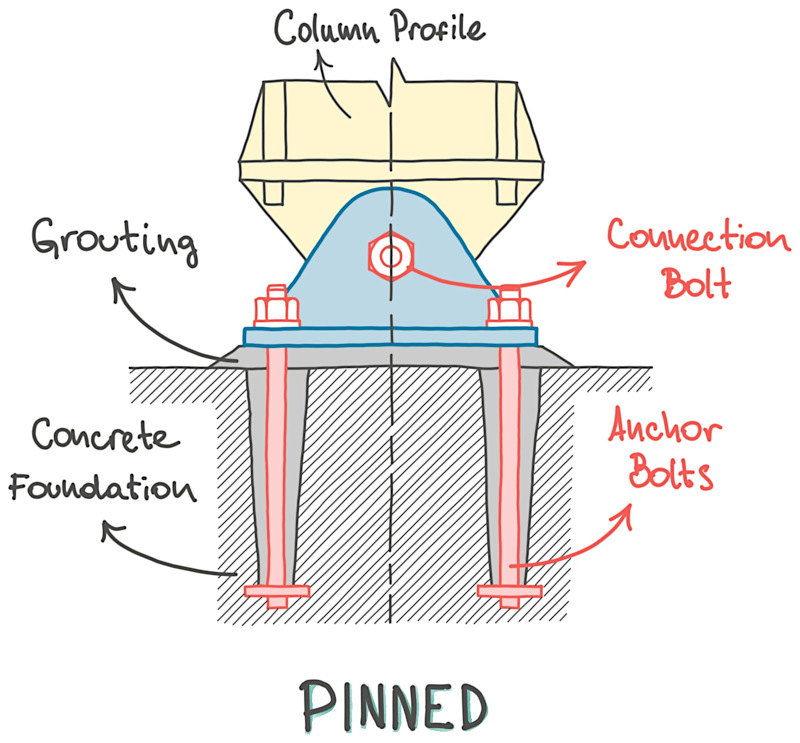 Column Profile
Grouting
Connection
Bolt
Concrete
Foundation
Anchor
Bolts
PINNED